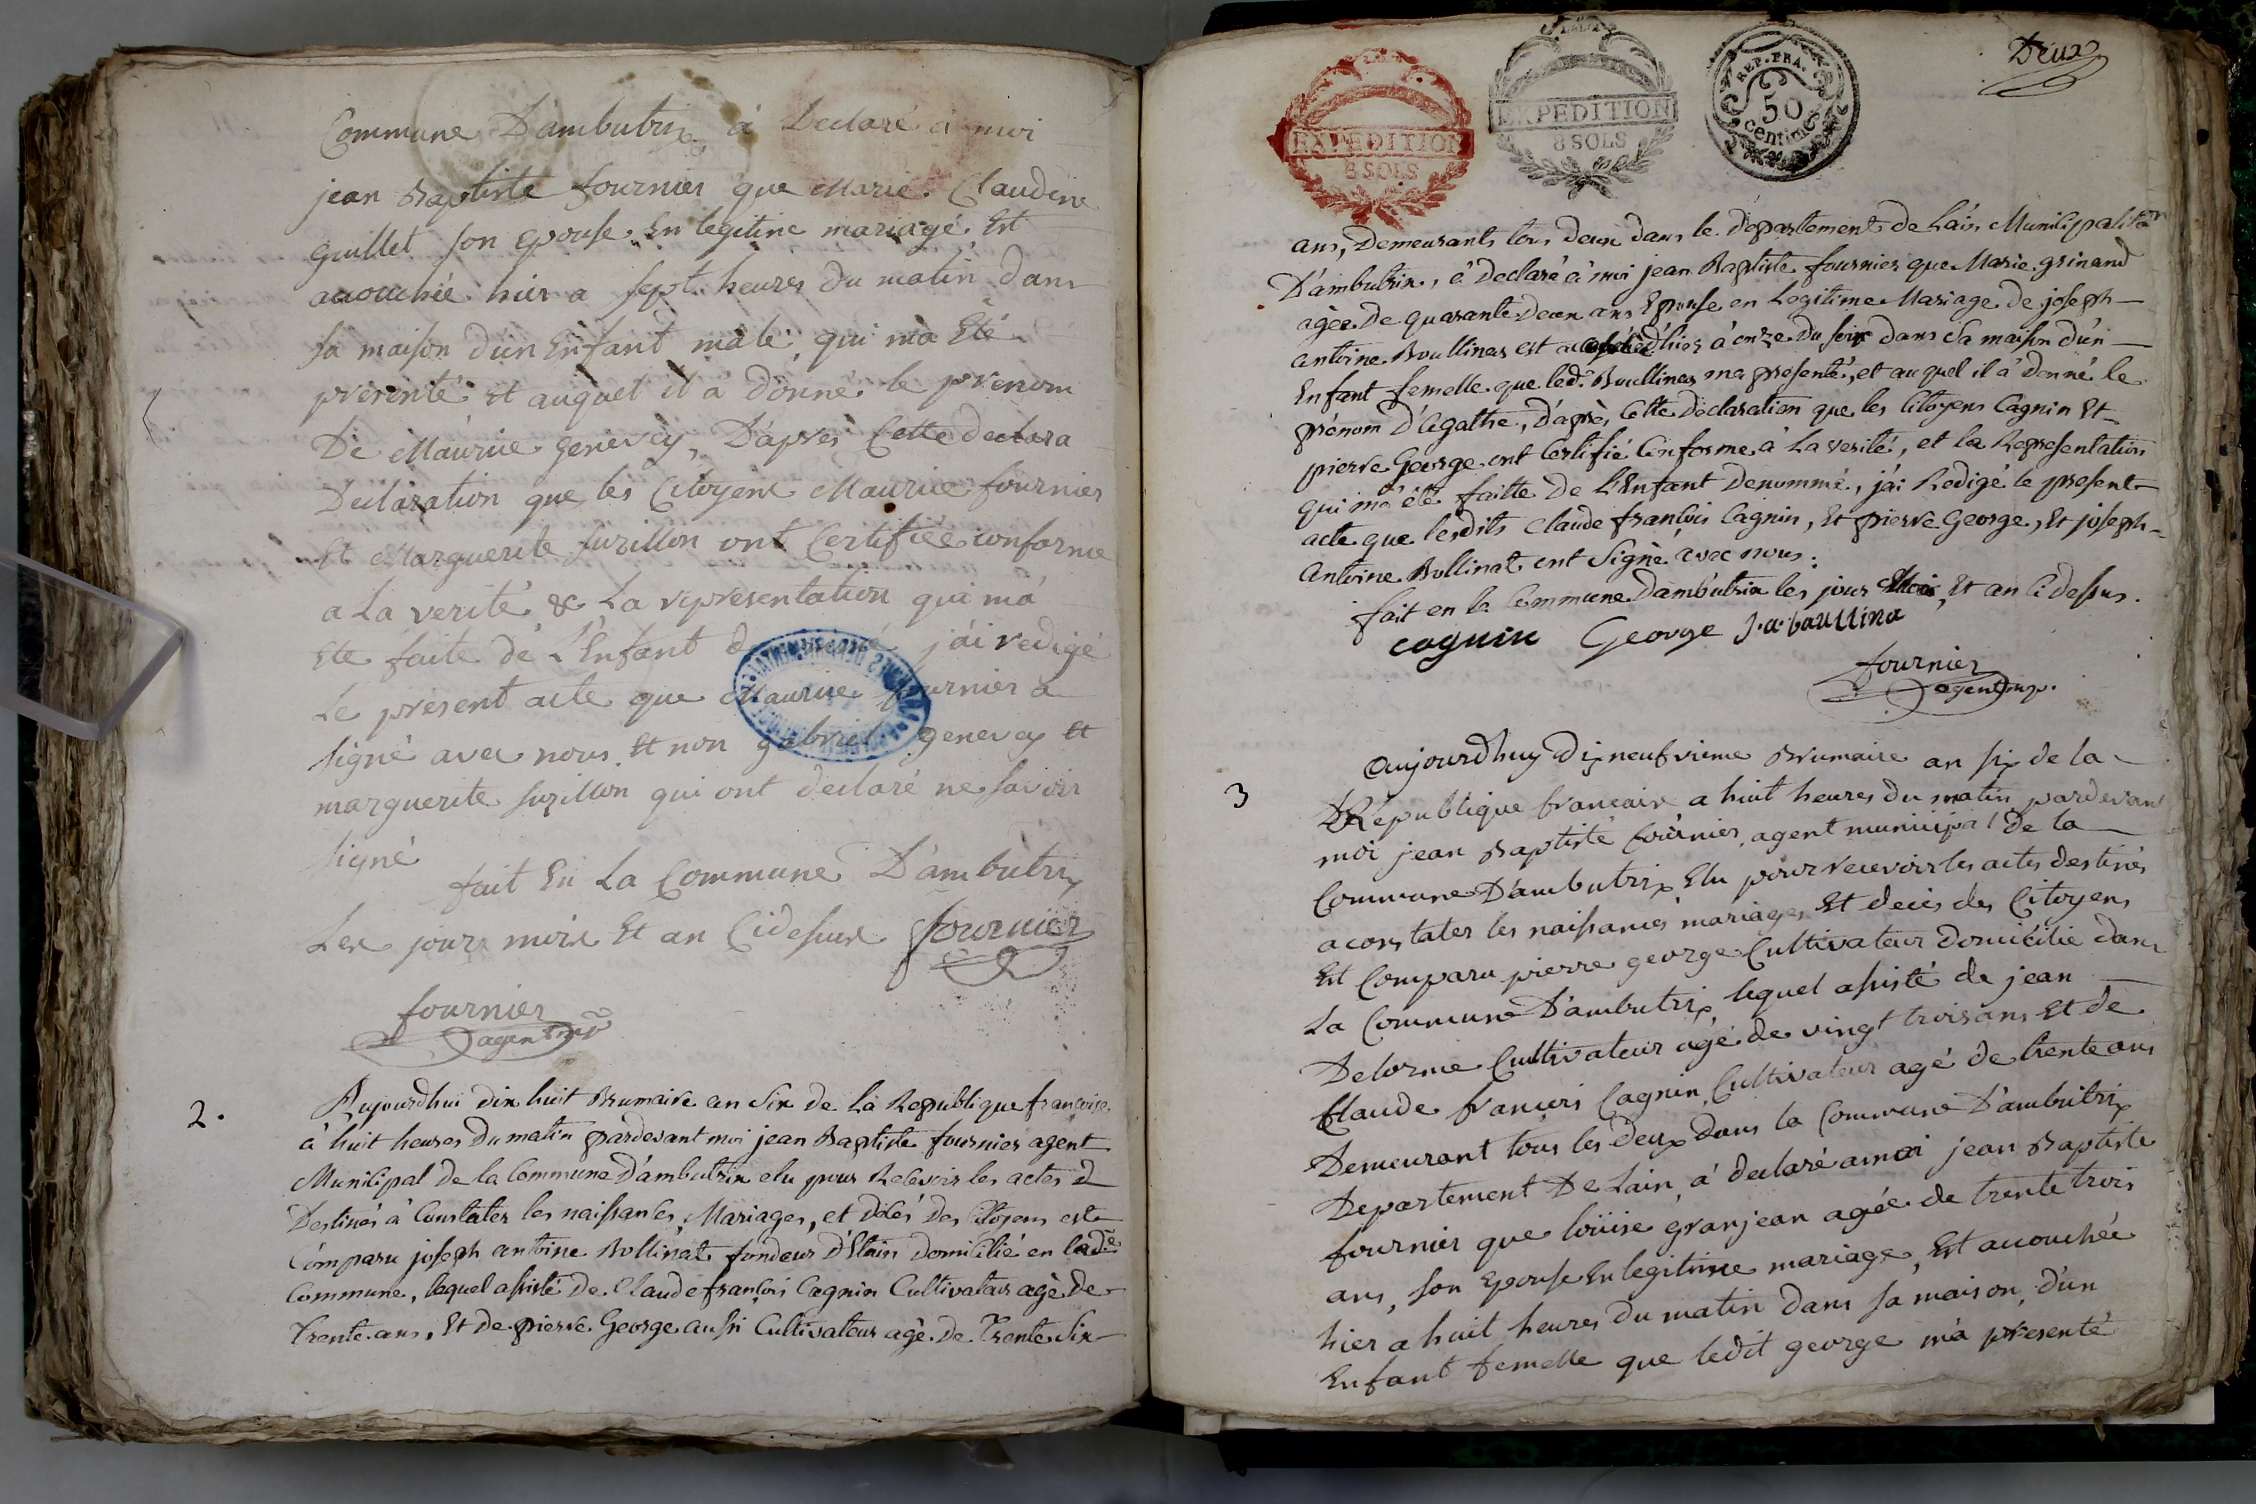 Commune D'ambutrix à Declaré a moi
jean Baptiste fournier que Marie Claudine
guillet son epouse En legitine mariage Est
accouchée hier a sept heures du matin dans
sa maison d'un Enfant mâle qui ma Eté
présenté Et auquel il a donné le prenom
De Maurice genevey, D'après Cette declara
Declaration que les Citoyens Maurice fournier
Et Marguerite suzillon ont Certifiée conforme
a La verité & La représentation qui ma
Ete faite de L'Enfant j'ai redigé
Le présent acte que Maurice fournier a
signé avec nous Et non gabriel genevey Et
marguerite suzillon qui ont declaré ne savoir
signé
fait En La Commune D'ambutrix
Les jours mois Et an Cidessus fournier
fournier
agent mpl
2.
Aujourdhui dix huit Brumaire an Six de la Republique françoise
à huit heures du matin pardevant moi jean Baptiste fournier agent
Municipal de la Commune D'ambutrix elu pour Recevoir les actes d
Destinés à Constater les naissances, Mariages, et décés des Citoyens est
Comparu joseph antoine Bollinat fondeur d'Etain domicilié en lade
Commune, lequel assisté de Claude françois Cagnin Cultivateur agé de
trente ans, Et de pierre George aussi Cultivateur agé de Trente Six
EXPEDITION
8 SOLS
EXPEDITION
8 SOLS
REP. FRA.
50
centimes
Deux
ans, Demeurants tous deux dans le département de Lain Municipalité
D'ambutrix, à Declaré à moi jean Baptiste fournier que Marie grinand
agée de quarante deux ans Epouse en Legitime Mariage de joseph
antoine Boullinat est accouchée d'hier à onze du soir dans sa maison d'un
Enfant femelle que led. Boullinat ma présenté, et auquel il à donné le
prénom D'Agathe, D'après Cette déclaration que les Citoyens Cagnin Et
pierre George ont Certifié Conforme à La verité, et la Representation
qui m'a été faitte de L'Enfant Denommé, j'ai Redigé le present
acte que lesdits Claude françois Cagnin, Et pierre George, Et joseph
antoine Bollinat ont Signé avec nous.
fait en la Commune D'ambutrix les jour Mois Et an Cidessus.
cagnin George J. a. baullina
fournier
agent mp.
3
aujourdhuy dix neufvieme Brumaire an six de la
République francaise a huit heures du matin pardevan
moi jean Baptiste fournier agent municipal de la
Commune D'ambutrix Elu pour recevoir les actes destinés
a constater les naissances mariages Et deces des Citoyens
Est Comparu pierre george Cultivateur domicilié dans
La Commune D'ambutrix lequel assisté de jean
Delorme Cultivateur agé de vingt trois ans Et de
Claude francois Cagnin Cultivateur agé de trente ans
Demeurant tous les deux dans la Commune D'ambutrix
Departement De Lain, à declaré a moi jean Baptiste
fournier que loüise granjean agée de trente trois
ans, son Epouse En legitime mariage, Est accouchée
hier a huit heures du matin dans sa maison, d'un
Enfant femelle que ledit george m'a presenté